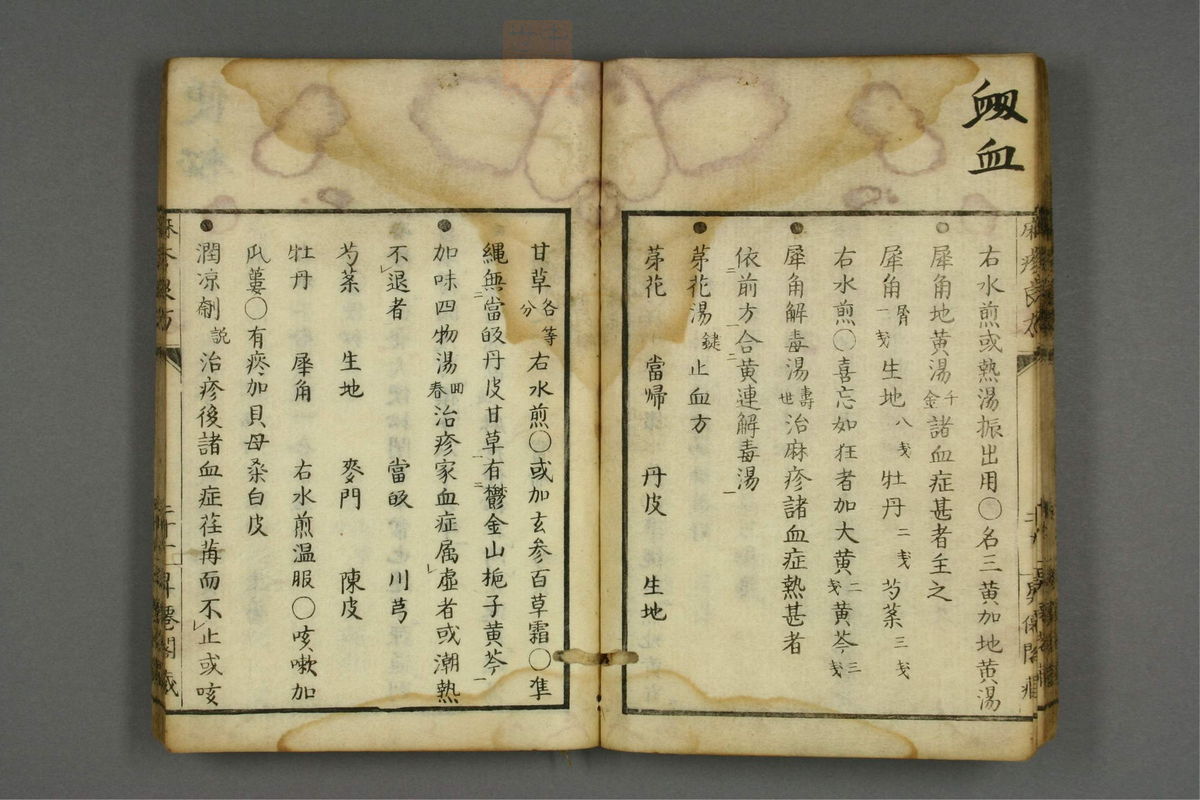 衂血
右水煎或熱湯振出用〇名三黄加地黄湯
●犀角地黄湯 千金 諸血症甚者主之
犀角 屑一戔 生地 八戔 牡丹 二戔 芍薬 三戔
右水煎〇喜忘如狂者加大黄 二戔 黄芩 三戔
●犀角解毒湯 壽世 治麻疹諸血症熱甚者
依前方合黄連解毒湯
●茅花湯 鍵 止血方
茅花 當帰 丹皮 生地
甘草 各等分 右水煎〇或加玄参百草霜〇準
縄無當皈丹皮甘草有鬱金山梔子黄芩
●加味四物湯 回春 治疹家血症属虚者或潮熱
不退者
芍薬 生地 當皈 川芎
牡丹 犀角 麥門 陳皮
右水煎温服〇咳嗽加
瓜蔞〇有痰加貝母桑白皮
●潤凉劑 説 治疹後諸血症荏苒而不止或咳